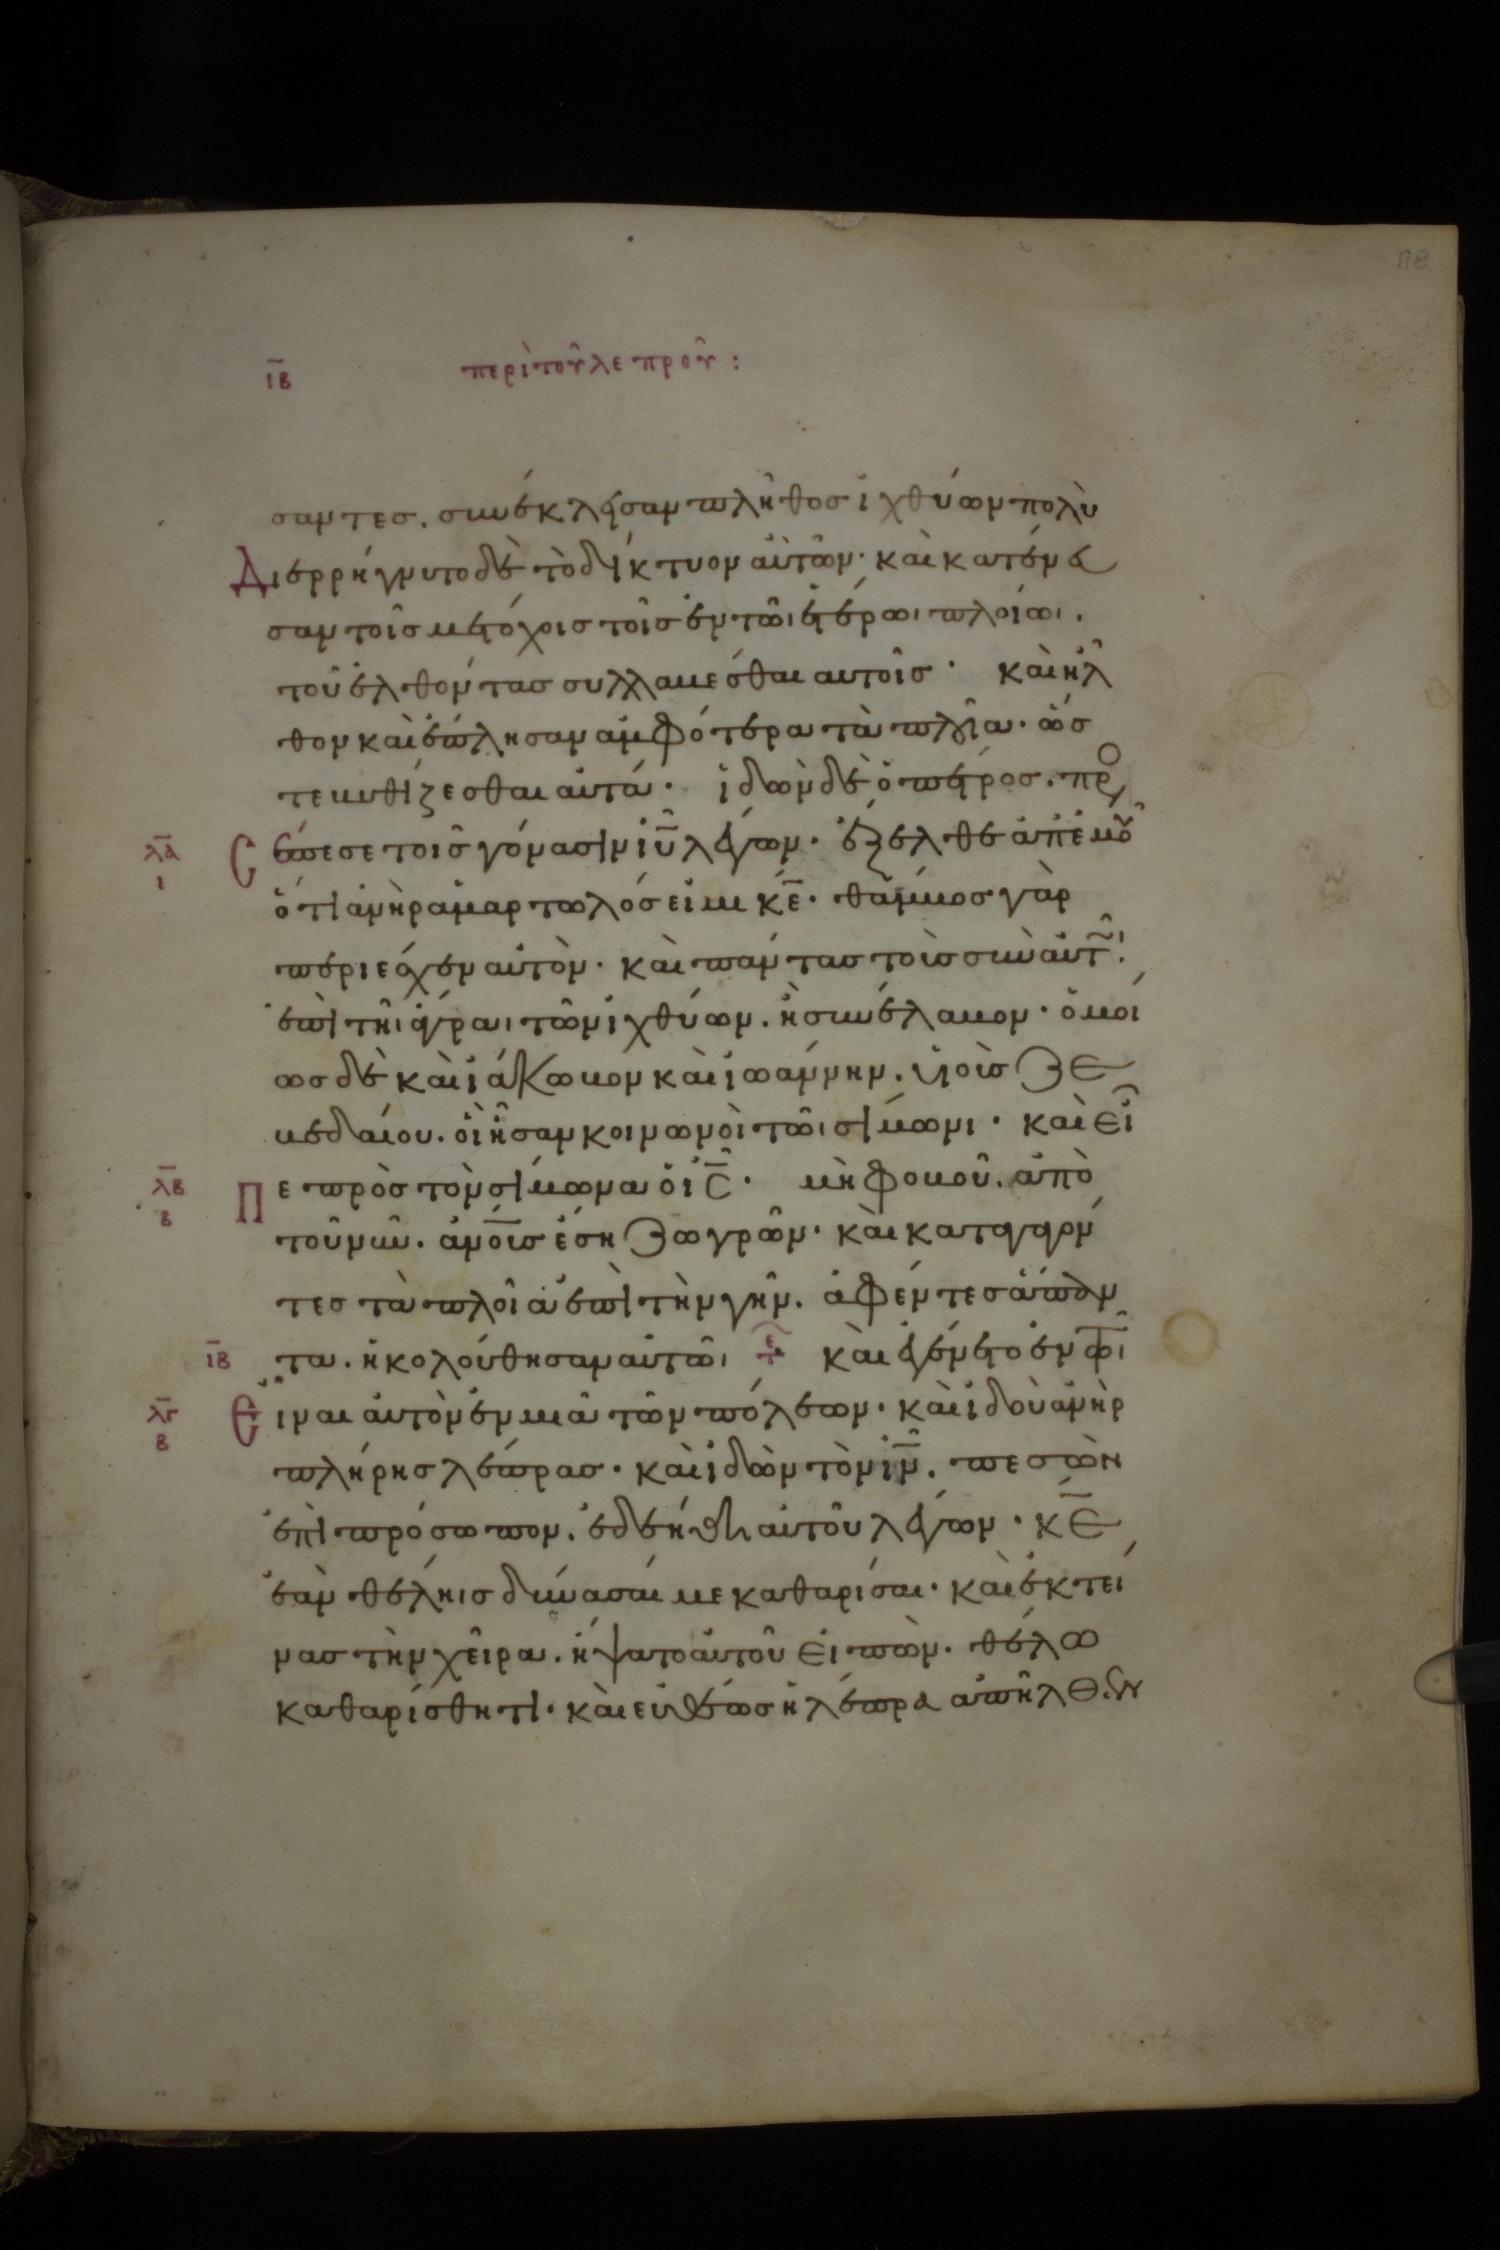 118
ιβ περὶ τοῦ λεπροῦ :
σαντες. συνέκλεισαν πλῆθος ἰχθύων πολὺ
Διερρήγνυτο δὲ τὸ δίκτυον αὐτῶν· καὶ κατένευ
σαν τοῖς μετόχοις τοῖς ἐν τῶι ἑτέρωι πλοίωι.
τοῦ ἐλθόντας συλλαβέσθαι αυτοῖς · καὶ ἦλ
θον καὶ ἔπλησαν ἀμφότερα τὰ πλοῖα· ὥσ
τε βυθίζεσθαι αὐτά· ἰδὼν δὲ ὁ πέτρος. προ
λα ι σέπεσε τοῖς γόνασιν ιυ λέγων· ἔξελθε ἀπ' ἐμοῦ
ὅτι ἀνὴρ ἁμαρτωλός εἰμι κε· θάμβος γὰρ
περιέσχεν αὐτὸν· καὶ πάντας τοὺς σὺν αὐτῶι.
ἐπὶ τῆι ἄγραι τῶν ἰχθύων. ἧ συνέλαβον· ὁμοί
ως δὲ καὶ ἰάκωβον καὶ ἰωάννην. υἱοὺς ζε
βεδαίου. οἳ ἦσαν κοινωνοὶ τῶι σίμωνι· καὶ εἶ
λβ β πε πρὸς τὸν σίμωνα ὁ ις· μὴ φοβοῦ. ἀπὸ
τοῦ νῦν. ανους ἔση ζωγρῶν· καὶ καταγαγόν
τες τὰ πλοῖα ἐπὶ τὴν γῆν. ἀφέντες ἅπαν
ιβ τα. ἠκολούθησαν αὐτῶι τε καὶ ἐγένετο ἐν τῶι
λγ β Εἶναι αὐτὸν ἐν μιᾶ τῶν πόλεων· καὶ ἰδοὺ ἀνὴρ
πλήρης λέπρας· καὶ ἰδὼν τὸν ιν. πεσὼν
ἐπὶ πρόσωπον. ἐδεήθη αὐτοῦ λέγων· κε
ἐὰν θέληις δύνασαί με καθαρίσαι· καὶ ἐκτεί
νας τὴν χεῖρα. ἥψατο αὐτοῦ εἰπὼν. θέλω
καθαρίσθητι· καὶ εὐθέως ἡ λέπρα ἀπῆλθεν